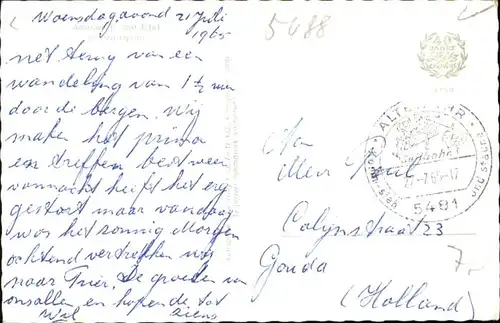 Woensdagavond 21 Juli
1965
net terug van een
wandeling van 1½ uur
door de bergen. Wij
maken het prima
en treffen best weer
vannacht heeft het erg
gestort maar vandaag
was het zonnig Morgen
ochtend vertrekken wij
naar Trier. De groeten van
ons allen en hopende tot
Wil ziens
5488
Aan
Meur
Colijnstraat 23
Gouda
(Holland)
7,-
ALTENAHR
-7.65-17
5481